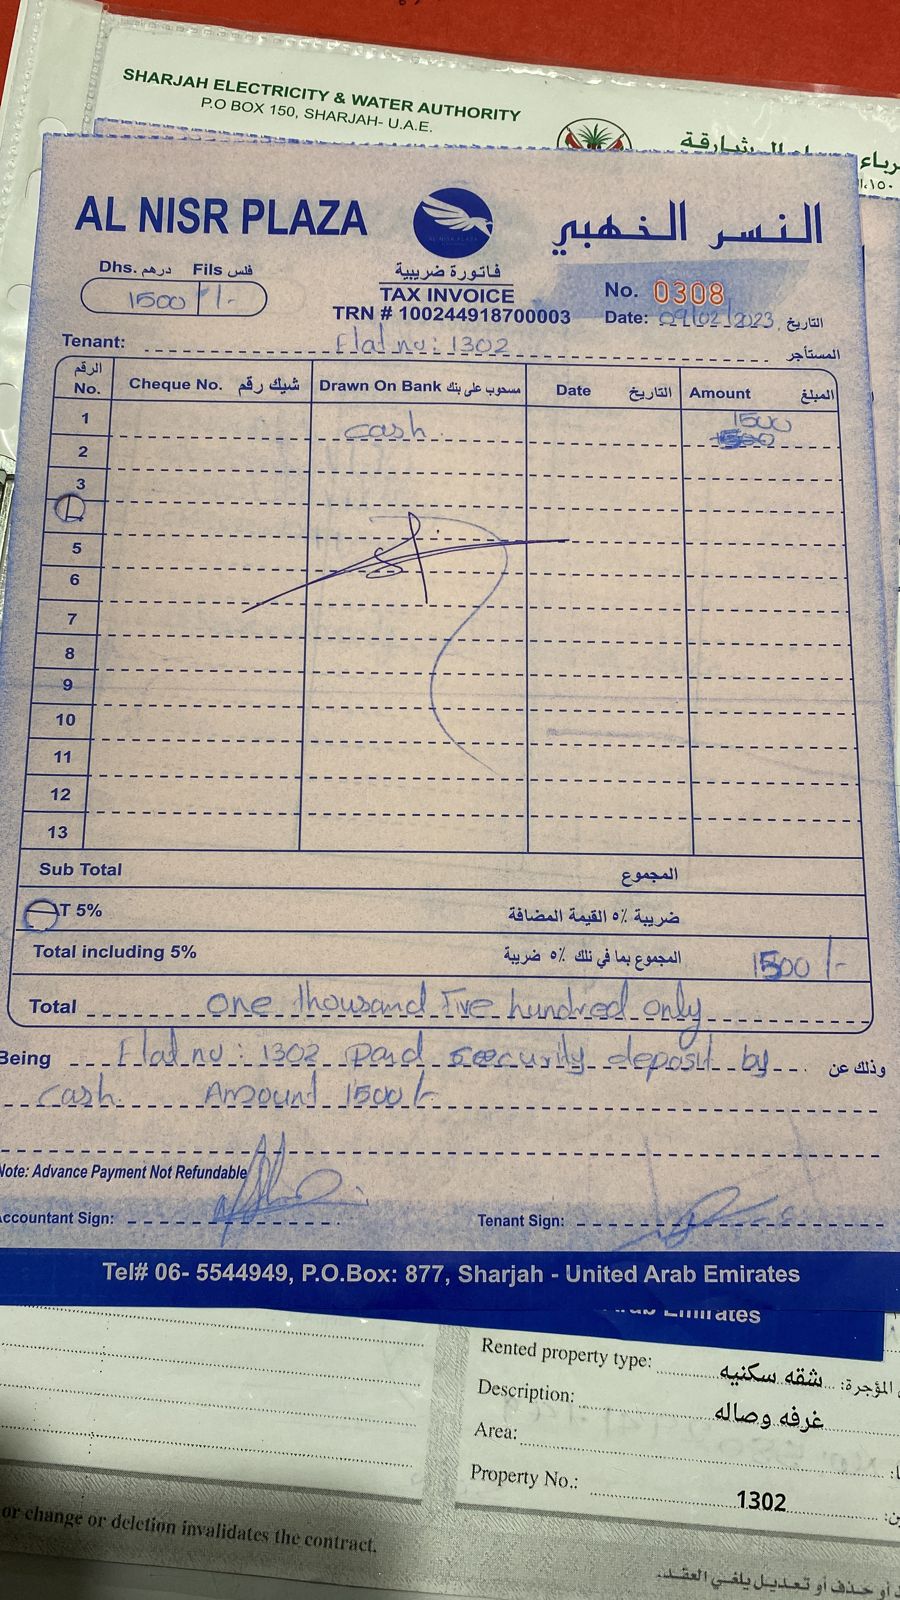 SHARJAH ELECTRICITY & WATER AUTHORITY
P.O BOX 150, SHARJAH- U.A.E.
AL NISR PLAZA
النسر الخهبي
Dhs. درهم Fils فلس
1500 /-
فاتورة ضريبية
TAX INVOICE
TRN # 100244918700003
No. 0308
Date: 09/02/2023 التاريخ
Tenant: Flat no: 1302 المستأجر
الرقم No. Cheque No. شيك رقم Drawn On Bank مسحوب على بنك Date التاريخ Amount المبلغ
1 cash 1500
2
3
5
6
7
8
9
10
11
12
13
Sub Total المجموع
T 5% ضريبة ٥٪ القيمة المضافة
Total including 5% المجموع بما في نلك ٥٪ ضريبة 1500/-
Total one thousand Five hundred only
Being Flat no: 1302 paid security deposit by وذلك عن
cash Amount 1500/-
Note: Advance Payment Not Refundable
Accountant Sign: Tenant Sign:
Tel# 06- 5544949, P.O.Box: 877, Sharjah - United Arab Emirates
Arab Emirates
Rented property type: شقه سكنيه المؤجرة:
Description: غرفه وصاله
Area:
Property No.: 1302
or change or deletion invalidates the contract.
أو حذف أو تعديل يلغي العقد.